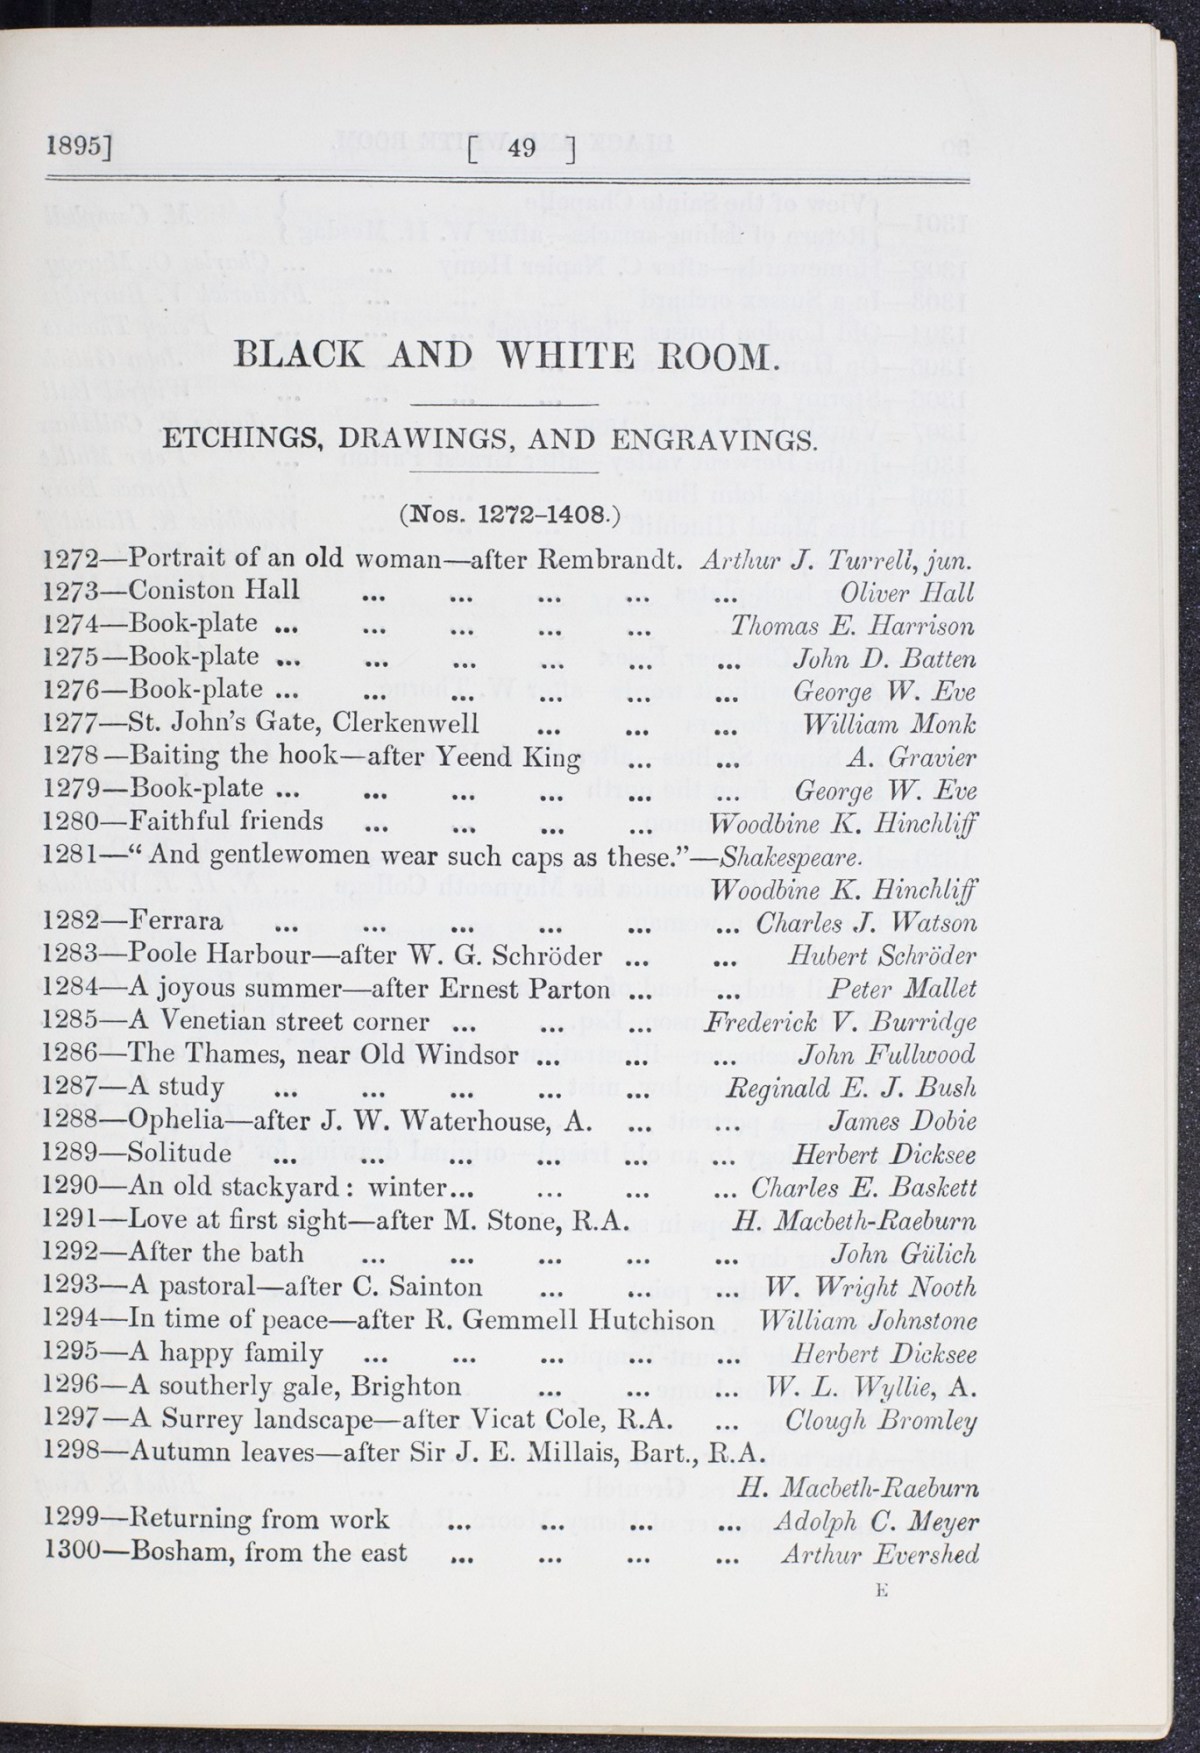 1895]
[ 49 ]
BLACK AND WHITE ROOM.
ETCHINGS, DRAWINGS, AND ENGRAVINGS.
(Nos. 1272-1408.)
1272—Portrait of an old woman—after Rembrandt. Arthur J. Turrell, jun.
1273—Coniston Hall ... ... ... ... ... Oliver Hall
1274—Book-plate ... ... ... ... ... Thomas E. Harrison
1275—Book-plate ... ... ... ... ... ... John D. Batten
1276—Book-plate ... ... ... ... ... ... George W. Eve
1277—St. John's Gate, Clerkenwell ... ... ... William Monk
1278—Baiting the hook—after Yeend King ... ... A. Gravier
1279—Book-plate ... ... ... ... ... ... George W. Eve
1280—Faithful friends ... ... ... ... Woodbine K. Hinchliff
1281—“ And gentlewomen wear such caps as these.”—Shakespeare.
Woodbine K. Hinchliff
1282—Ferrara ... ... ... ... ... ... Charles J. Watson
1283—Poole Harbour—after W. G. Schröder ... ... Hubert Schröder
1284—A joyous summer—after Ernest Parton ... ... Peter Mallet
1285—A Venetian street corner ... ... ... Frederick V. Burridge
1286—The Thames, near Old Windsor ... ... ... John Fullwood
1287—A study ... ... ... ... ... Reginald E. J. Bush
1288—Ophelia—after J. W. Waterhouse, A. ... ... James Dobie
1289—Solitude ... ... ... ... ... ... Herbert Dicksee
1290—An old stackyard : winter... ... ... ... Charles E. Baskett
1291—Love at first sight—after M. Stone, R.A. H. Macbeth-Raeburn
1292—After the bath ... ... ... ... ... John Gülich
1293—A pastoral—after C. Sainton ... ... ... W. Wright Nooth
1294—In time of peace—after R. Gemmell Hutchison William Johnstone
1295—A happy family ... ... ... ... ... Herbert Dicksee
1296—A southerly gale, Brighton ... ... ... W. L. Wyllie, A.
1297—A Surrey landscape—after Vicat Cole, R.A. ... Clough Bromley
1298—Autumn leaves—after Sir J. E. Millais, Bart., R.A.
H. Macbeth-Raeburn
1299—Returning from work ... ... ... ... Adolph C. Meyer
1300—Bosham, from the east ... ... ... ... Arthur Evershed
E